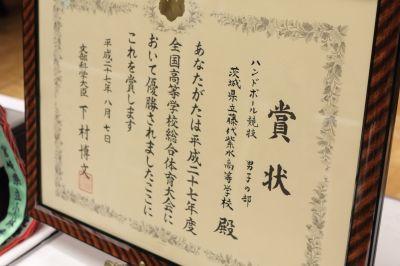 賞状
ハンドボール競技 男子の部
茨城県立藤代紫水高等学校 殿
あなたがたは平成二十七年度
全国高等学校総合体育大会に
おいて優勝されましたここに
これを賞します
平成二十七年八月七日
文部科学大臣 下村博文